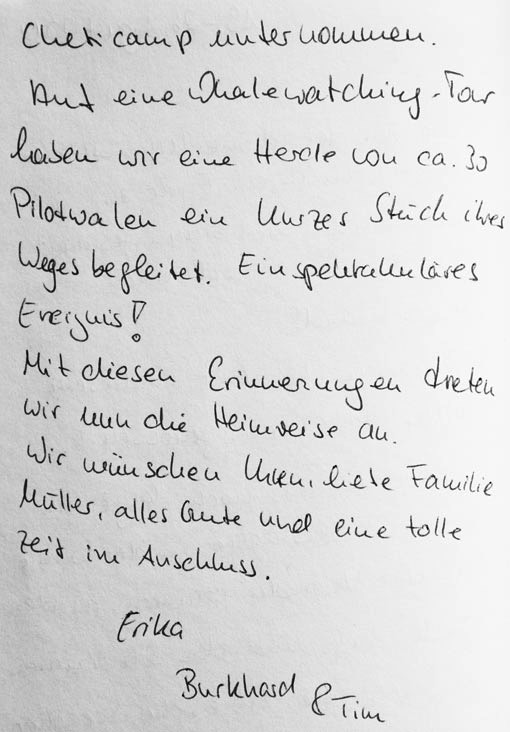 Cheticamp unternommen.
Auf eine Whalewatching-Tour
haben wir eine Herde von ca. 30
Pilotwalen ein kurzes Stück ihres
Weges begleitet. Ein spektakuläres
Ereignis!
Mit diesen Erinnerungen treten
wir nun die Heimreise an.
Wir wünschen Ihnen, liebe Familie
Müller, alles Gute und eine tolle
Zeit im Anschluss.
Erika
Burkhard & Tim